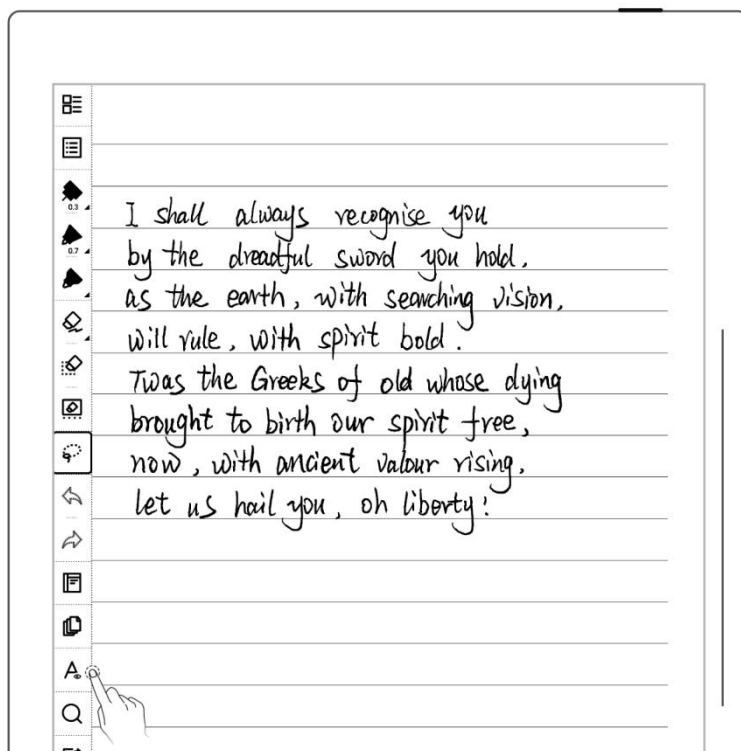 0.3
0.7
I shall always recognise you
by the dreadful sword you hold,
as the earth, with searching vision,
will rule, with spirit bold.
Twas the Greeks of old whose dying
brought to birth our spirit free,
now, with ancient valour rising,
let us hail you, oh liberty!
A